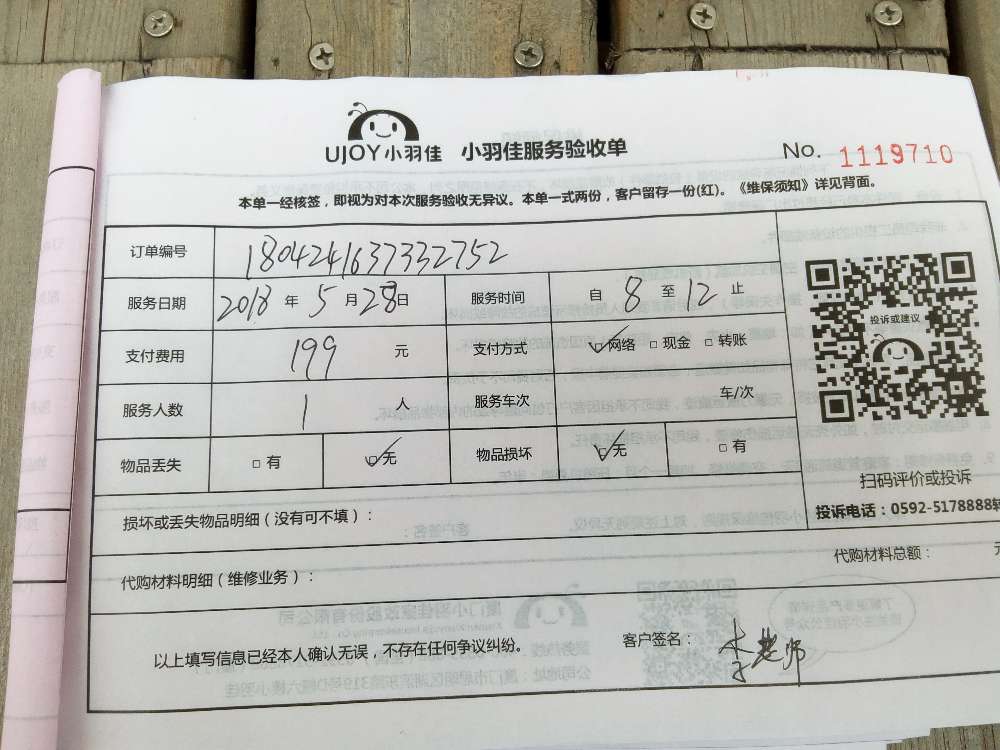 UJOY小羽佳 小羽佳服务验收单 No. 1119710
本单一经核签，即视为对本次服务验收无异议。本单一式两份，客户留存一份(红)。《维保须知》详见背面。
订单编号 1804241637332752
服务日期 2018 年 5 月 28 日 服务时间 自 8 至 12 止
支付费用 199 元 支付方式 网络 现金 转账
投诉或建议
服务人数 1 人 服务车次 车/次
物品丢失 有 无 物品损坏 无 有
扫码评价或投诉
投诉电话：0592-5178888转
损坏或丢失物品明细（没有可不填）：
代购材料明细（维修业务）： 代购材料总额：
以上填写信息已经本人确认无误，不存在任何争议纠纷。 客户签名： 李老师